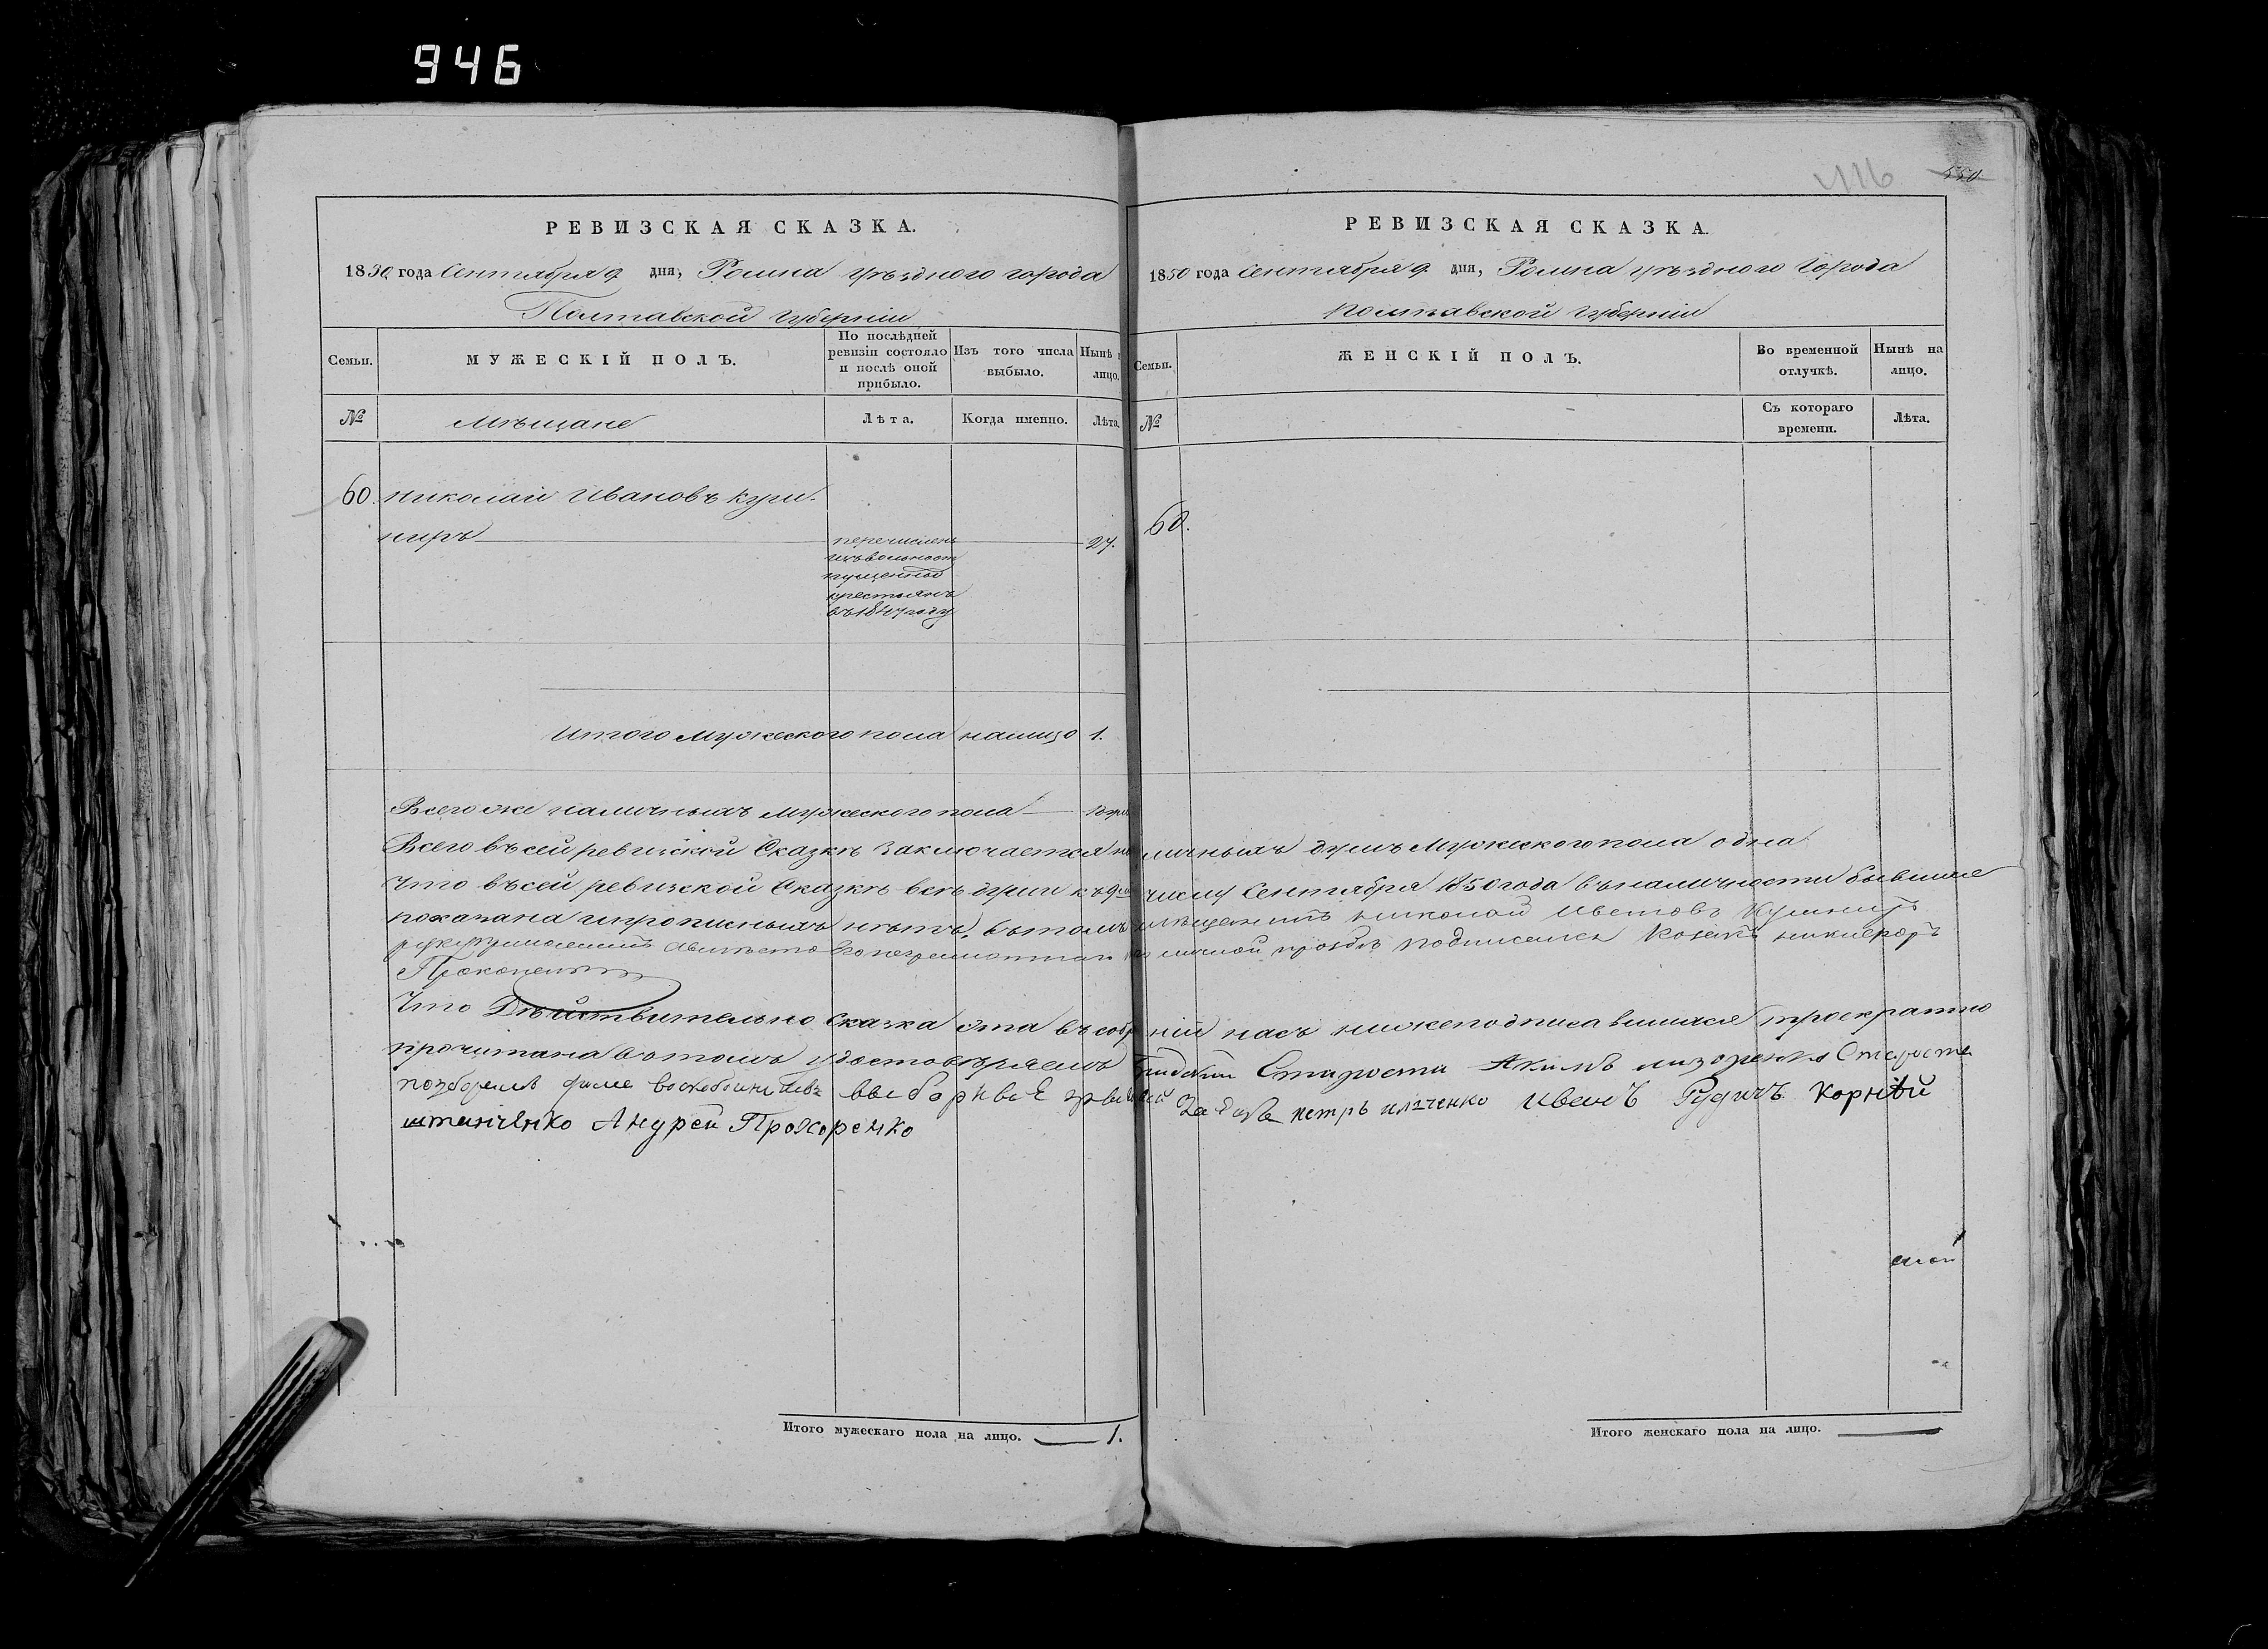 946
550
РЕВИЗСКАЯ СКАЗКА.
1850 года Сентября 9 дня, Ромна уѣзднаго города
Полтавской Губерніи
Семьи.
МУЖЕСКІЙ ПОЛЪ.
По послѣдней ревизіи состояло и послѣ оной прибыло.
Изъ того числа выбыло.
Нынѣ лицо.
№
Мѣщане
Лѣта.
Когда именно.
Лѣта.
60. Николай Ивановъ Куш-
ниръ
27.
перечисленъ
изъ вольноот
пущенных
крестьянъ
въ 1847 году
Итого Мужескаго пола налицо 1.
Всего же наличныхъ мужескаго пола
Итого мужескаго пола на лицо. 1.
РЕВИЗСКАЯ СКАЗКА.
1850 года Сентября 9 дня, Ромна уѣзднаго Города
Полтавской Губерніи
Семьи.
ЖЕНСКІЙ ПОЛЪ.
Во временной отлучкѣ.
Нынѣ на лицо.
№
Съ котораго времени.
Лѣта.
60.
Всего въ сей ревизской Сказкѣ заключается наличныхъ душъ Мужескаго пола одна
Что въ сей ревизской Сказкѣ всѣ души къ 9 числу Сентября 1850 года въ наличности бывшие
показана и прописныхъ нѣтъ, въ томъ мѣщанинъ Николай Ивановъ Кушниръ
а вместо его неграмотнаго личной прозбѣ подписался Козакъ Никифоръ
Прокопенко
Что Дѣйствительно Сказка эта въ собраніи насъ нижеподписавшихся троекратно
прочитана въ томъ удостовѣряемъ Старости Акимъ Староста
выборные Петръ Иванъ Рудичъ Корнѣй
Андрей Прохоренко
Итого женскаго пола на лицо.